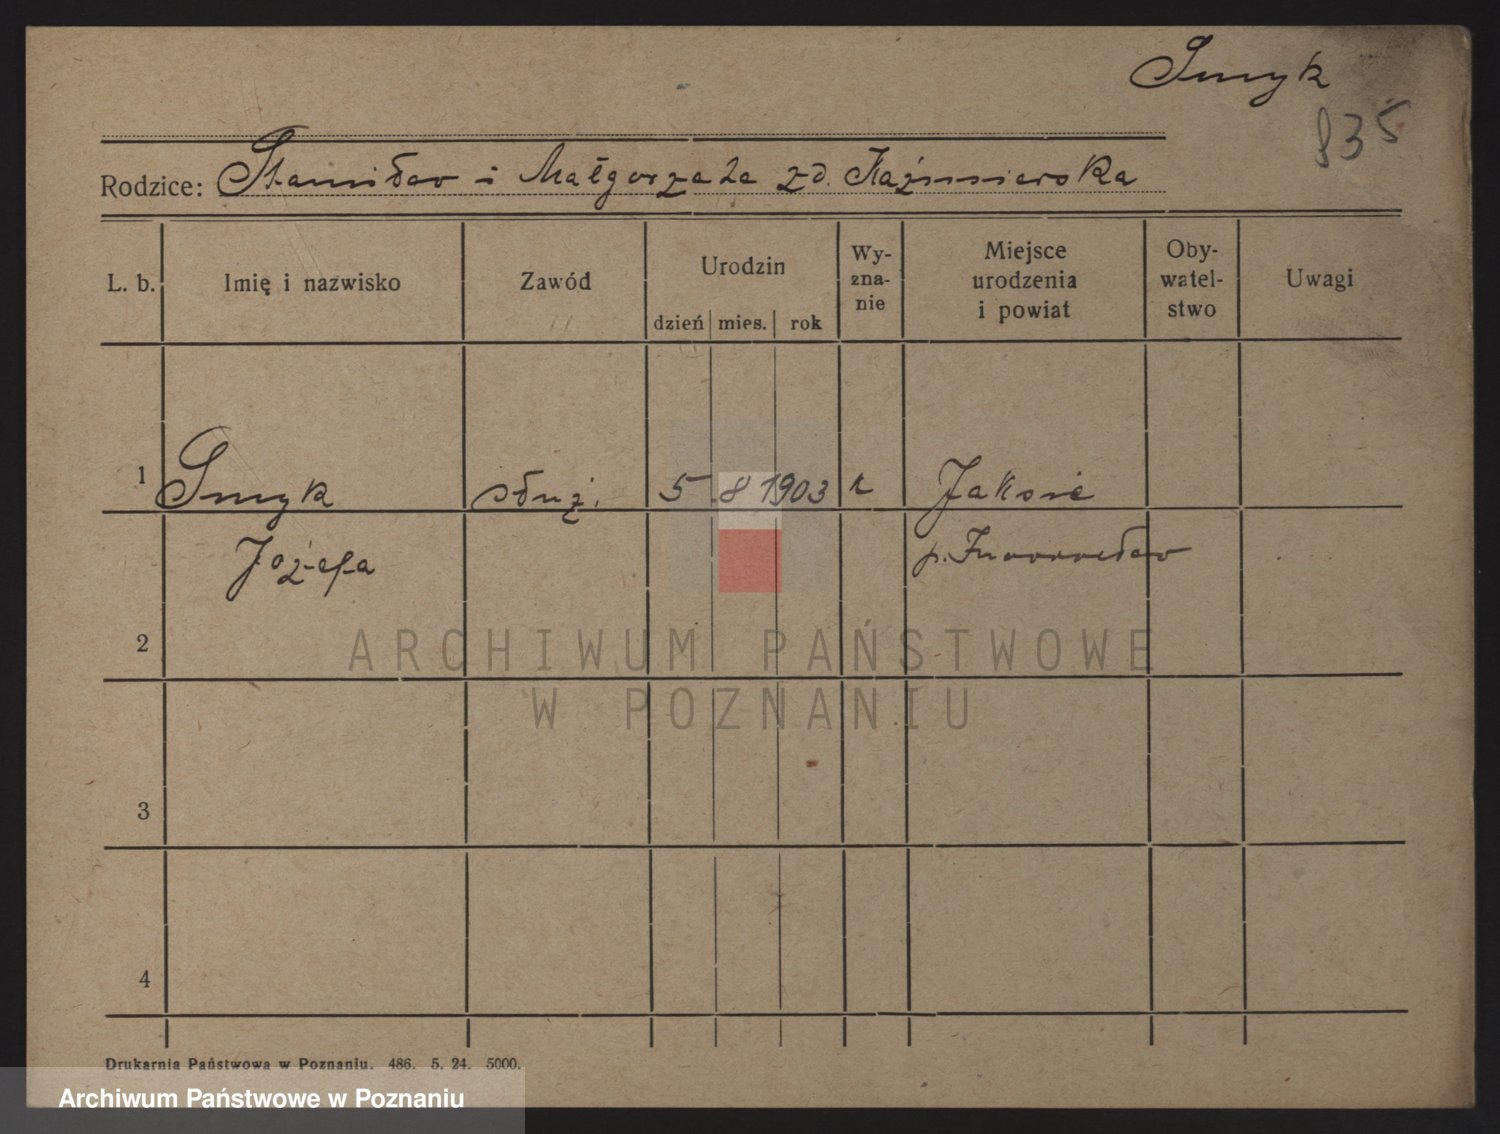 Smyk
835
Rodzice: Stanisław i Małgorzata zd. Kaźmierska
L. b. Imię i nazwisko Zawód Urodzin dzień mies. rok Wy-zna-nie Miejsce urodzenia i powiat Oby-watel-stwo Uwagi
1 Smyk służ. 5 8 1903 k Jaksice
Józefa p. Inowrocław
2
3
4
ARCHIWUM PAŃSTWOWE
W POZNANIU
Drukarnia Państwowa w Poznaniu. 486. 5. 24. 5000.
Archiwum Państwowe w Poznaniu